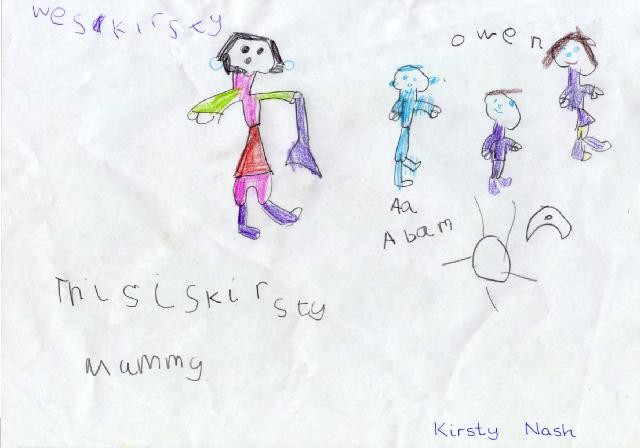 wesckirsty
owen
Aa
Abam
Thisiskirsty
Mummy
Kirsty Nash